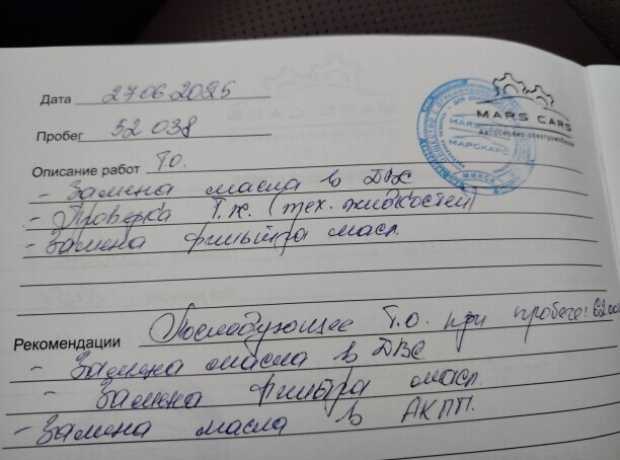 Дата 27.06.2025
MARS CARS
Пробег 52 038
Автосервис
МАРСКАРС
МИНСК
Описание работ Т.О.
- Замена масла в ДВС
- Проверка т.ж. (тех. жидкостей)
- Замена фильтра масл.
Рекомендации Последующее Т.О. при пробеге:
- Замена масла в ДВС
- Замена фильтра масл.
- Замена масла в АКПП.